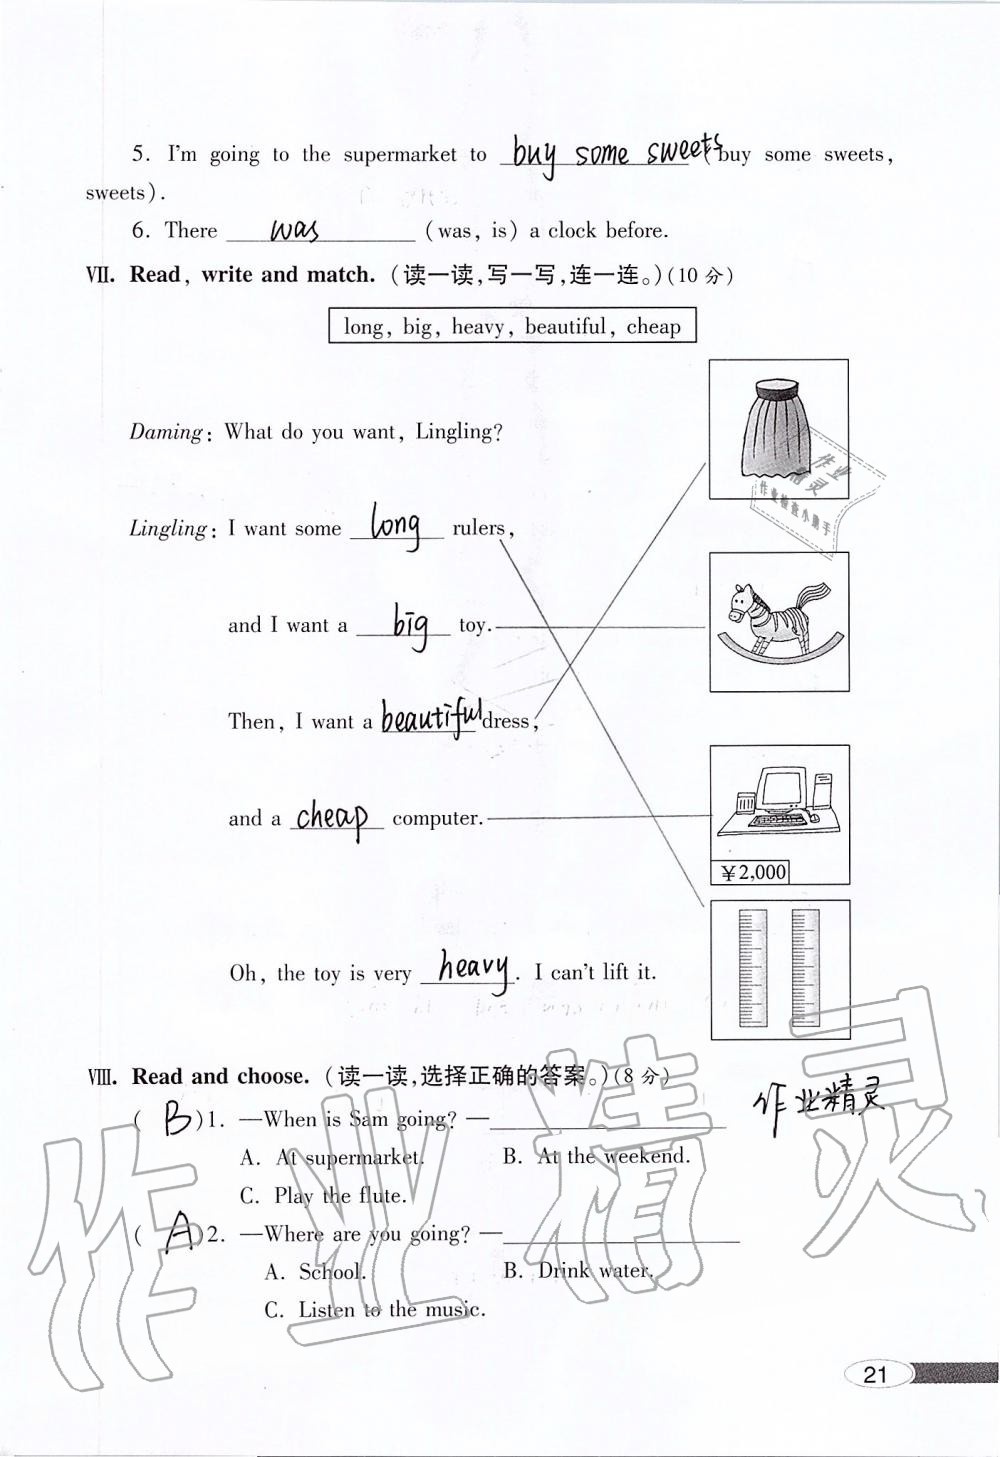 5. I'm going to the supermarket to buy some sweets buy some sweets,
sweets).
6. There was (was, is) a clock before.
Ⅶ. Read, write and match. (读一读,写一写,连一连。)(10 分)
long, big, heavy, beautiful, cheap
Daming: What do you want, Lingling?
作业
精灵
作业检查小助手
Lingling: I want some long rulers,
and I want a big toy.
Then, I want a beautiful dress,
and a cheap computer.
¥2,000
Oh, the toy is very heavy. I can't lift it.
Ⅷ. Read and choose. (读一读,选择正确的答案。)(8 分)
作业精灵
( B )1. —When is Sam going? —
A. At supermarket. B. At the weekend.
C. Play the flute.
( A )2. —Where are you going? —
A. School. B. Drink water.
C. Listen to the music.
作业精灵
21